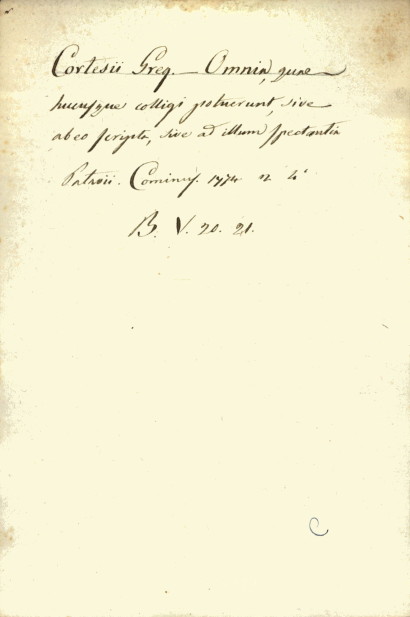 Cortesii Greg. — Omnia, quae
hucusque colligi potuerunt, sive
ab eo scripta, sive ad illum spectantia
Patavii. Cominus. 1774 2 4°
B. V. 20. 21.
C